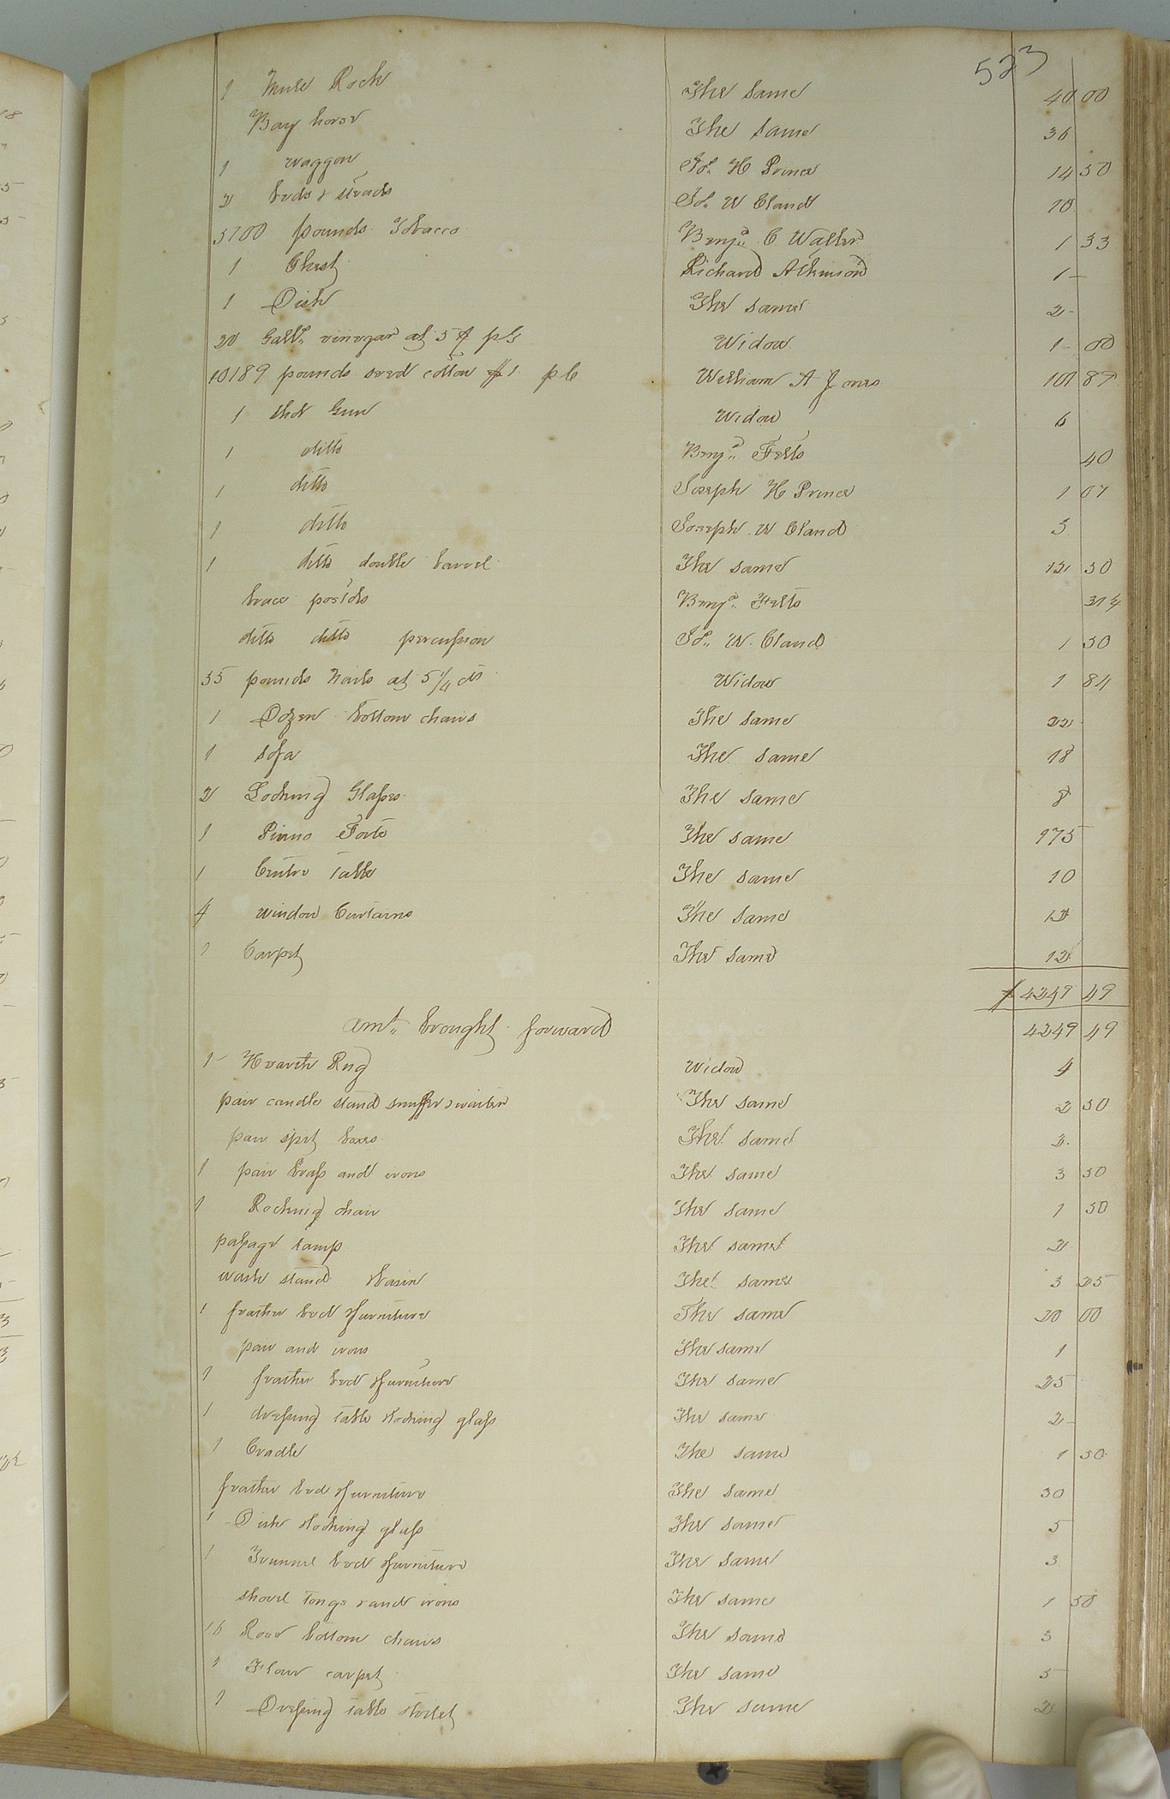 523
1 Mule Rock The same 40 00
Bay horse The same 36
1 waggon Jos. H Prince 14 50
2 beds & steads Jos. W Cland 10
5100 pounds Tobacco Benja. C Walker 1 33
1 Chest Richard Atkinson 1 -
1 Dish The same 2 -
20 Galls. vinegar at 5 ¢ pg Widow 1 - 00
10189 pounds seed cotton $1 p C William A Jones 101 89
1 shot Gun Widow 6
1 ditto Benja. Felts 40
1 ditto Joseph H Prince 1 07
1 ditto Joseph W Cland 3
1 ditto double barrel The same 12 50
brace pistols Benja. Felts 31 ¼
ditto ditto percussion Jos. W. Cland 1 50
35 pounds nails at 5 1/4 cts Widow 1 84
1 Dozen bottom chairs The same 22
1 sofa The same 18
2 Looking Glasses The same 8
1 Piano Forte The same 175
1 Centre Table The same 10
4 window Curtains The same 12
1 Carpet The same 12
$ 4249 49
amt. brought forward 4249 49
1 Hearth Rug Widow 4
pair candle stand snuffer & waiter The same 2 50
pair spit boxes The same 2.
1 pair brass and irons The same 3 50
1 Rocking chair The same 1 50
passage lamp The same 2
wash stand & basin The same 3 25
1 feather bed & furniture The same 20 00
pair and irons The same 1
1 feather bed & furniture The same 25
1 dressing table & looking glass The same 2 -
1 Cradle The same 1 50
feather bed & furniture The same 30
1 Dish & looking glass The same 5
1 Trunnel bed & furniture The same 3
shovel tongs & and irons The same 1 50
16 Reed bottom chairs The same 3
1 Floor carpet The same 5
1 Dressing table & toilet The same 2